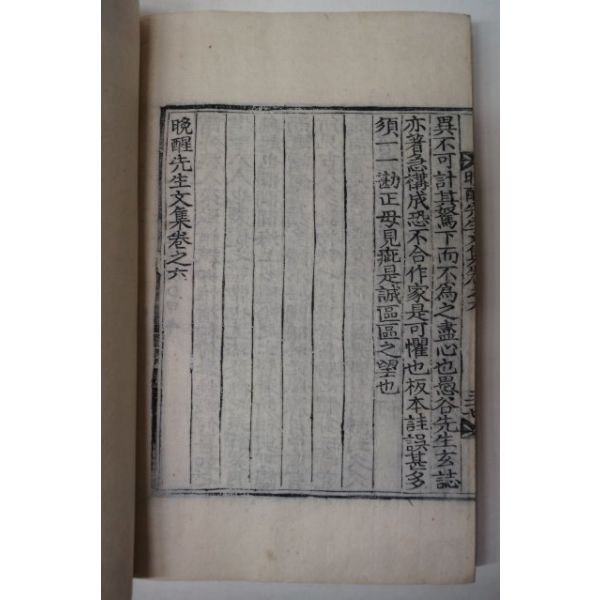 異不可計其駑下而不爲之盡心也愚谷先生玄誌
亦著急構成恐不合作家是可懼也板本註誤甚多
須一一勘正毋見疵是誠區區之望也
晩醒先生文集卷之六